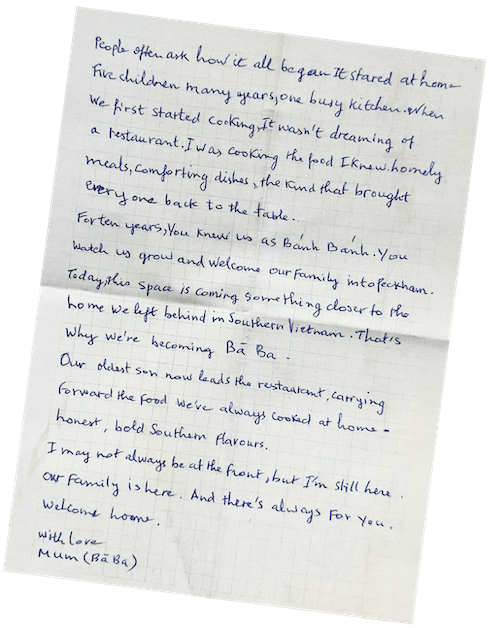 People often ask how it all began It stared at home
Five children many years, one busy kitchen. When
we first started cooking, It wasn't dreaming of
a restaurant. I was cooking the food I knew. homely
meals, comforting dishes, the kind that brought
everyone back to the table.
For ten years, You knew us as Bánh Bánh. You
watch us grow and welcome our family into peckham.
Today, this space is coming something closer to the
home we left behind in Southern Vietnam. That's
why we're becoming Bā Ba.
Our oldest son now leads the restaurant, carrying
forward the food we've always cooked at home -
honest, bold Southern flavours.
I may not always be at the front, but I'm still here.
our family is here. And there's always for you.
Welcome home.
with love
Mum (Bā Ba)